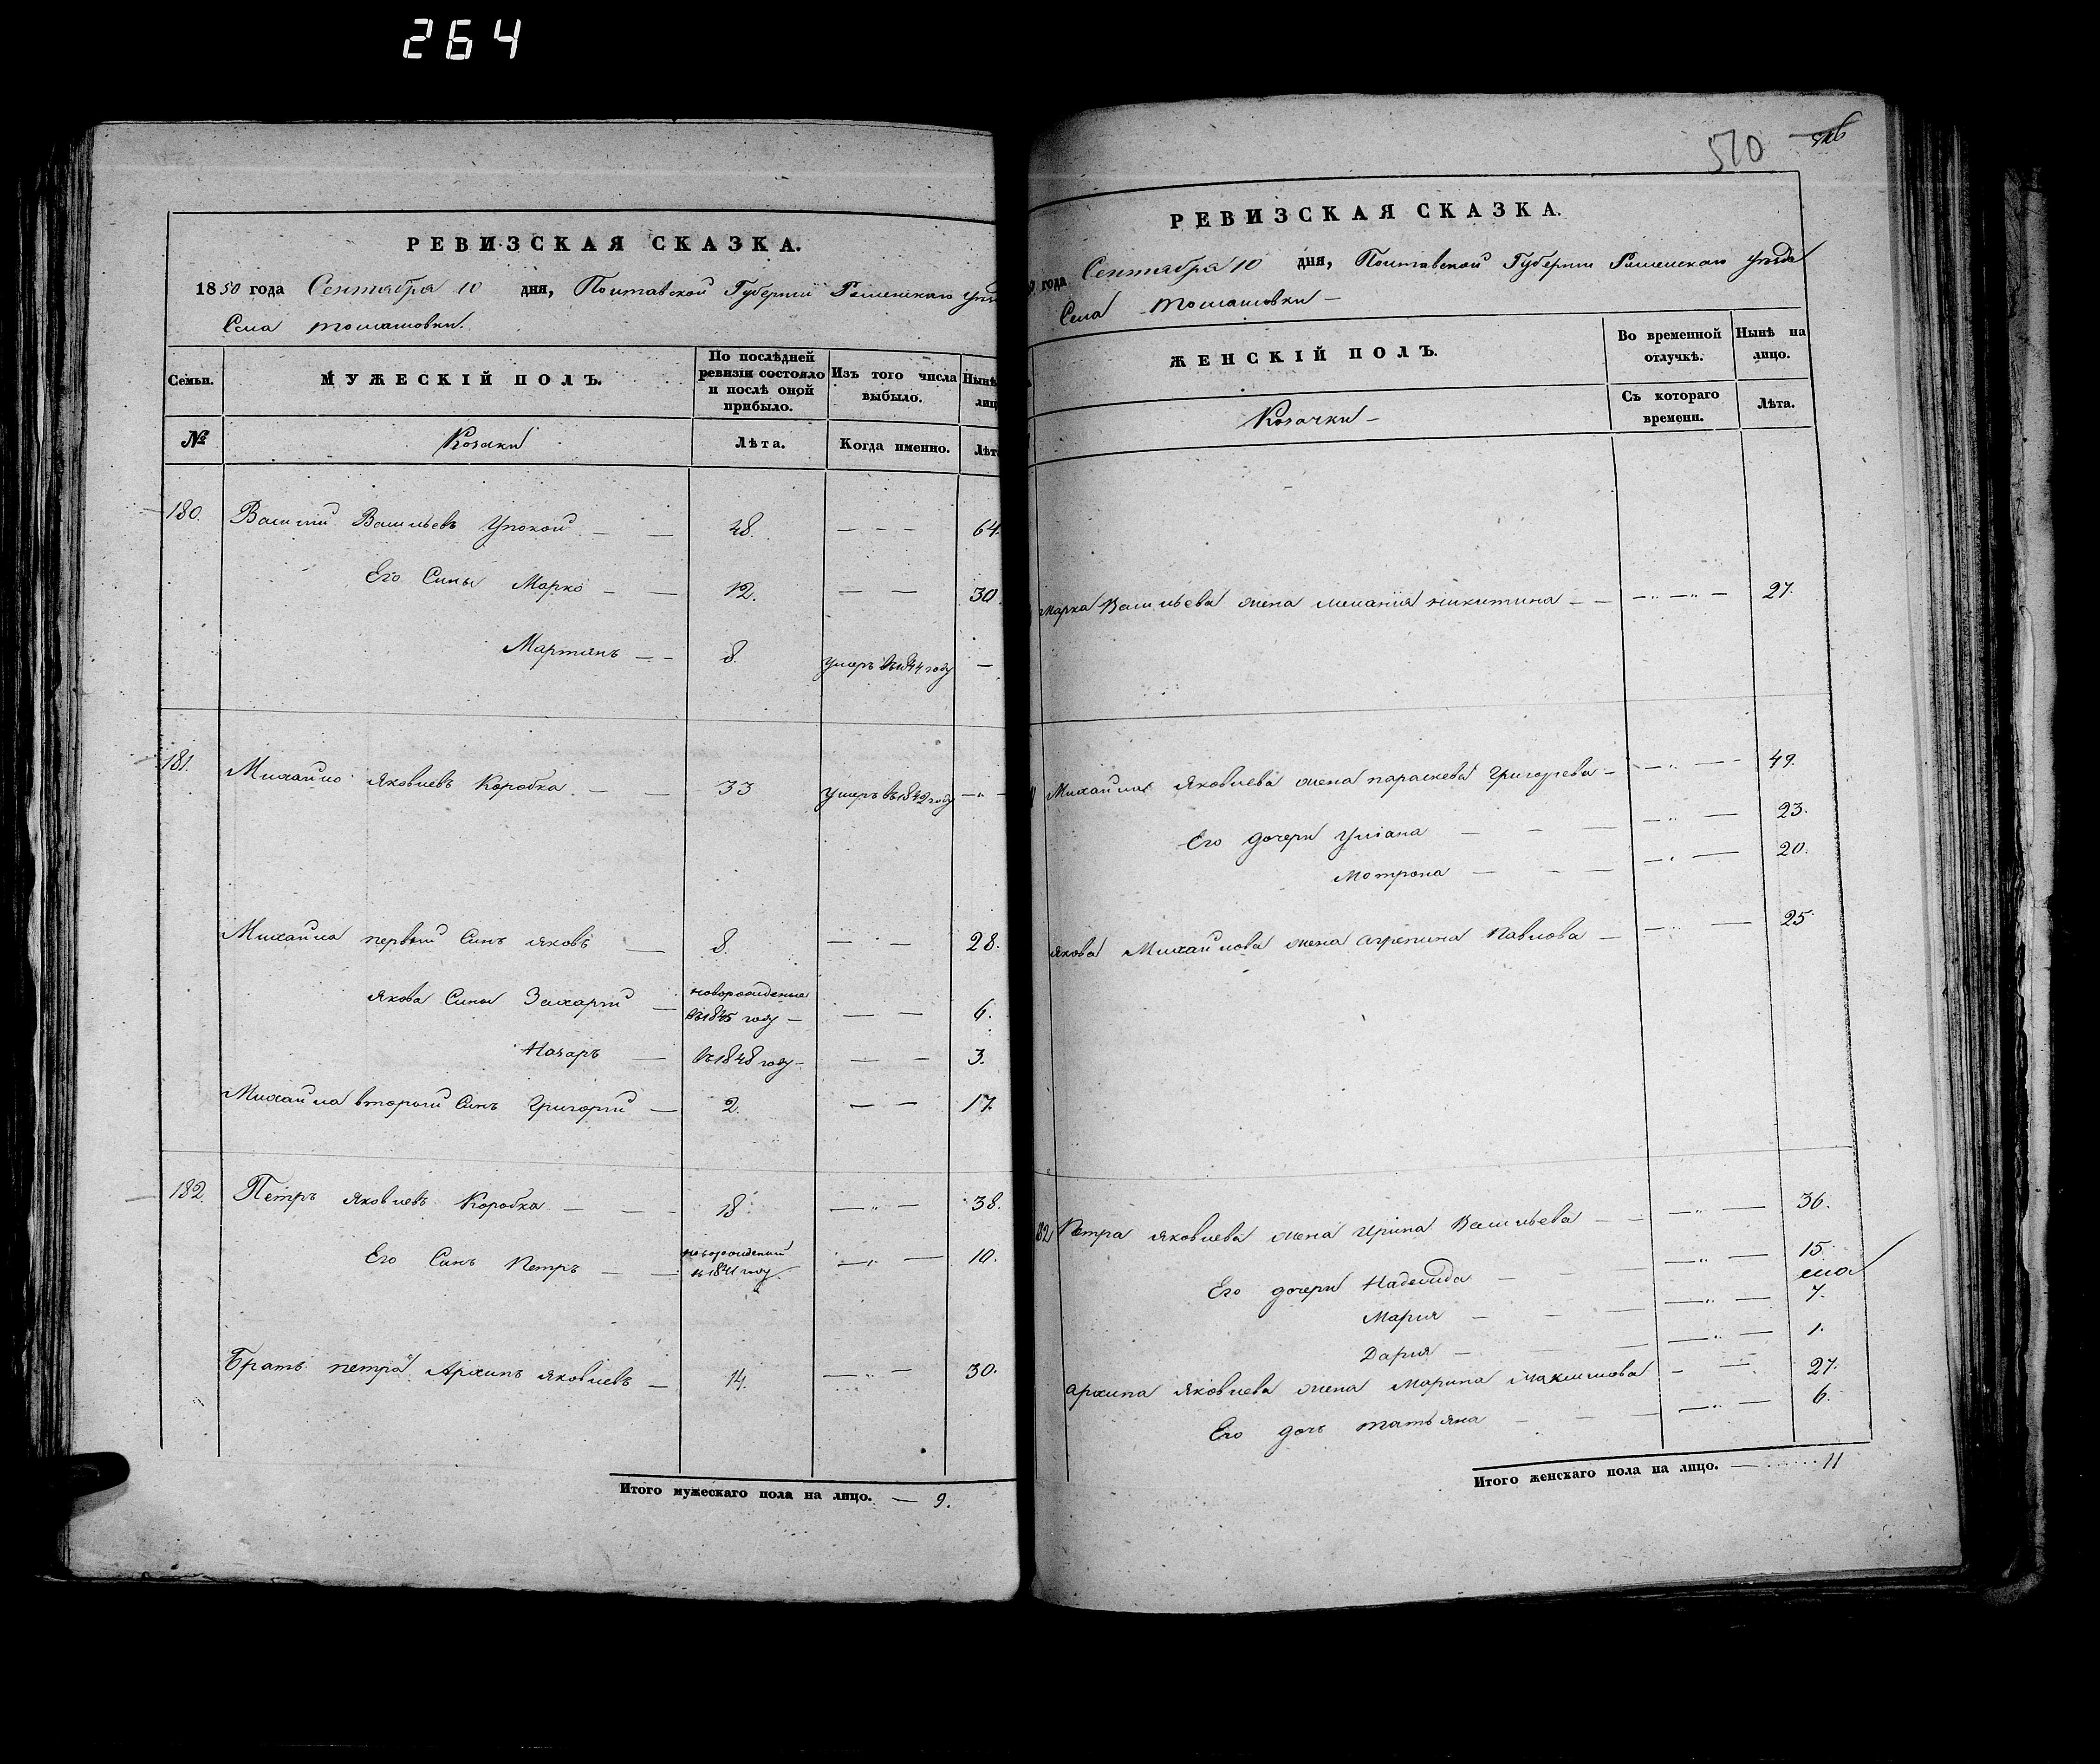 264
РЕВИЗСКАЯ СКАЗКА.
1850 года Сентября 10 дня, Полтавской Губернiи Роменскаго уѣзда
Села Томашовки.
Семьи.
МУЖЕСКIЙ ПОЛЪ.
По послѣдней ревизiи состояло и послѣ оной прибыло.
Изъ того числа выбыло.
Нынѣ
лиц
№
Козаки
Лѣта.
Когда именно.
Лѣт
180. Василий Васильевъ Упокой — — 48. — — — 64.
Его Сины Марко — — 12. — — 30.
Мартинъ — — 8. умеръ въ 1844 году —
181. Михайло Яковлевъ Коробка — — 33 умеръ въ 1842 году — „ —
Михайла первый Синъ Яковъ — 8. — — 28.
Якова Сины Захарий — новорожденые въ 1845 году — — — 6.
Назаръ — въ 1848 году — — — 3.
Михайла вторый Синъ Григорий — 2. — — 17.
182. Петръ Яковлевъ Коробка — — — 18. — „ — 38.
Его Синъ Петръ — — новорождений въ 1841 году — „ — 10.
Братъ петра Архипъ Яковлевъ — 14. — „ — 30.
Итого мужескаго пола на лицо. — 9.
510
РЕВИЗСКАЯ СКАЗКА.
0 года Сентября 10 дня, Полтавской Губернии Роменскаго уѣзда
Села Томашовки —
ЖЕНСКIЙ ПОЛЪ.
Во временной отлучкѣ.
Нынѣ на лицо.
Козачки —
Съ котораго времени.
Лѣта.
Марка Васильева жена Меланiя Никитина — — — „ — „ — 27.
Михайла Яковлева жена параскева Григорьева — — „ — — 49.
Его дочери Улiана — — — — „ — 23.
Мотрона — — — — „ — 20.
Якова Михайлова жена Агрепина Павлова — — „ — 25
182 Петра Яковлева жена Ирина Васильева — — — „ — 36.
Его дочери Надежда — — — — „ — 15.
Мария — — — — „ — 7.
Дария — — — — „ — 1.
Архипа Яковлева жена Марина Максимова — — 27.
Его дочь татьяна — — — — „ — 6.
Итого женскаго пола на лицо. — 11